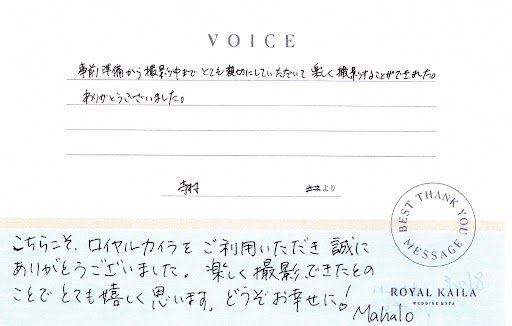 VOICE
事前準備から撮影中までとても親切にしていただいて楽しく撮影することができました。
ありがとうございました。
寺村 より
BEST THANK YOU MESSAGE
こちらこそ、ロイヤルカイラをご利用いただき誠に
ありがとうございました。楽しく撮影できたとの
ことでとても嬉しく思います。どうぞお幸せに!
Mahalo
ROYAL KAILA
WEDDING & SPA